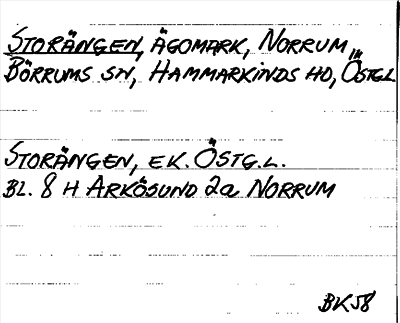 STORÄNGEN, ÄGOMARK, NORRUM,
BÖRRUMS SN, HAMMARKINDS HD, ÖSTG.L
STORÄNGEN, EK. ÖSTG.L.
BL. 8 H ARKÖSUND 2a NORRUM
BK58